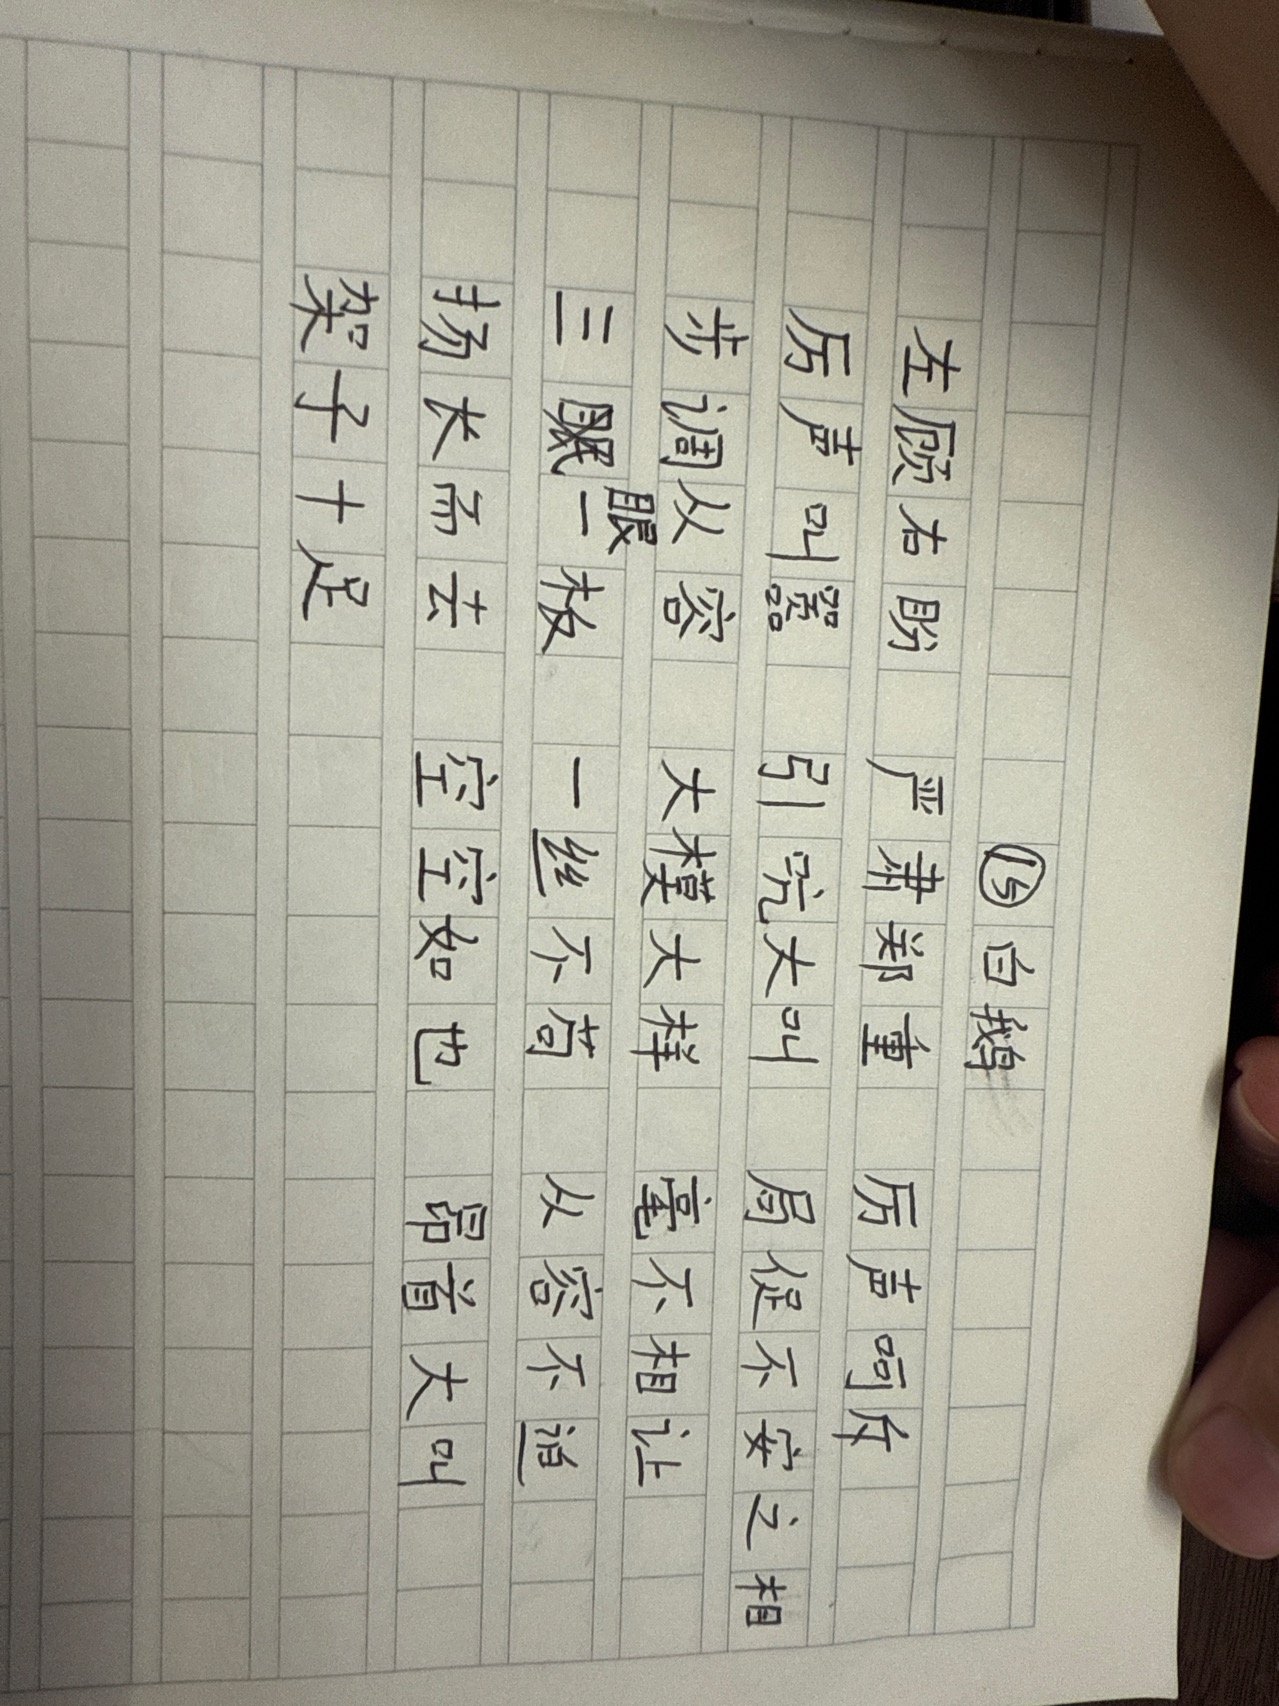 ⑮白鹅
左顾右盼 严肃郑重 厉声呵斥
厉声叫嚣 引吭大叫 局促不安之相
步调从容 大模大样 毫不相让
三眼一板 一丝不苟 从容不迫
扬长而去 空空如也 昂首大叫
架子十足